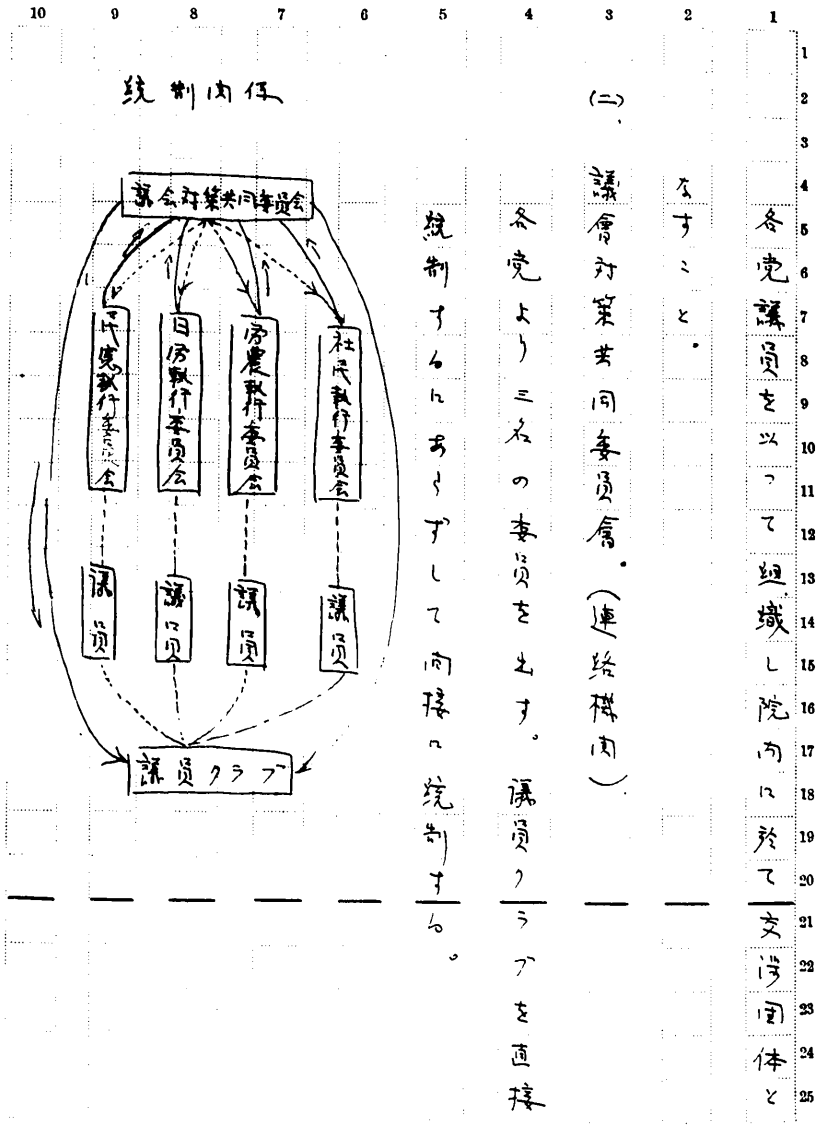 10 9 8 7 6 5 4 3 2 1
1
2
3
4
5
6
7
8
9
10
11
12
13
14
15
16
17
18
19
20
21
22
23
24
25
各党議員を以って組織し院内に於て交渉団体と
なすこと。
(二)、議會対策共同委員會。(連絡機関)
各党より三名の委員を出す。議員クラブを直接
統制するにあらずして間接に統制する。
統制関係
議会対策共同委員会
社民執行委員会
労農執行委員会
日労執行委員会
民憲執行委員会
議員
議員
議員
議員
議員クラブ